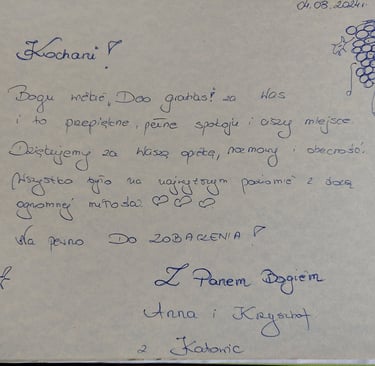 04.08.2024r.
Kochani!
Bogu niech, Deo gratias! za Was
i to przepiękne, pełne spokoju i ciszy miejsce.
Dziękujemy za Waszą opiekę, rozmowy i obecność.
Wszystko było na najwyższym poziomie z dozą
ogromnej miłości ♡ ♡ ♡
Na pewno DO ZOBACZENIA!
Z Panem Bogiem
Anna i Krzysztof
z Katowic